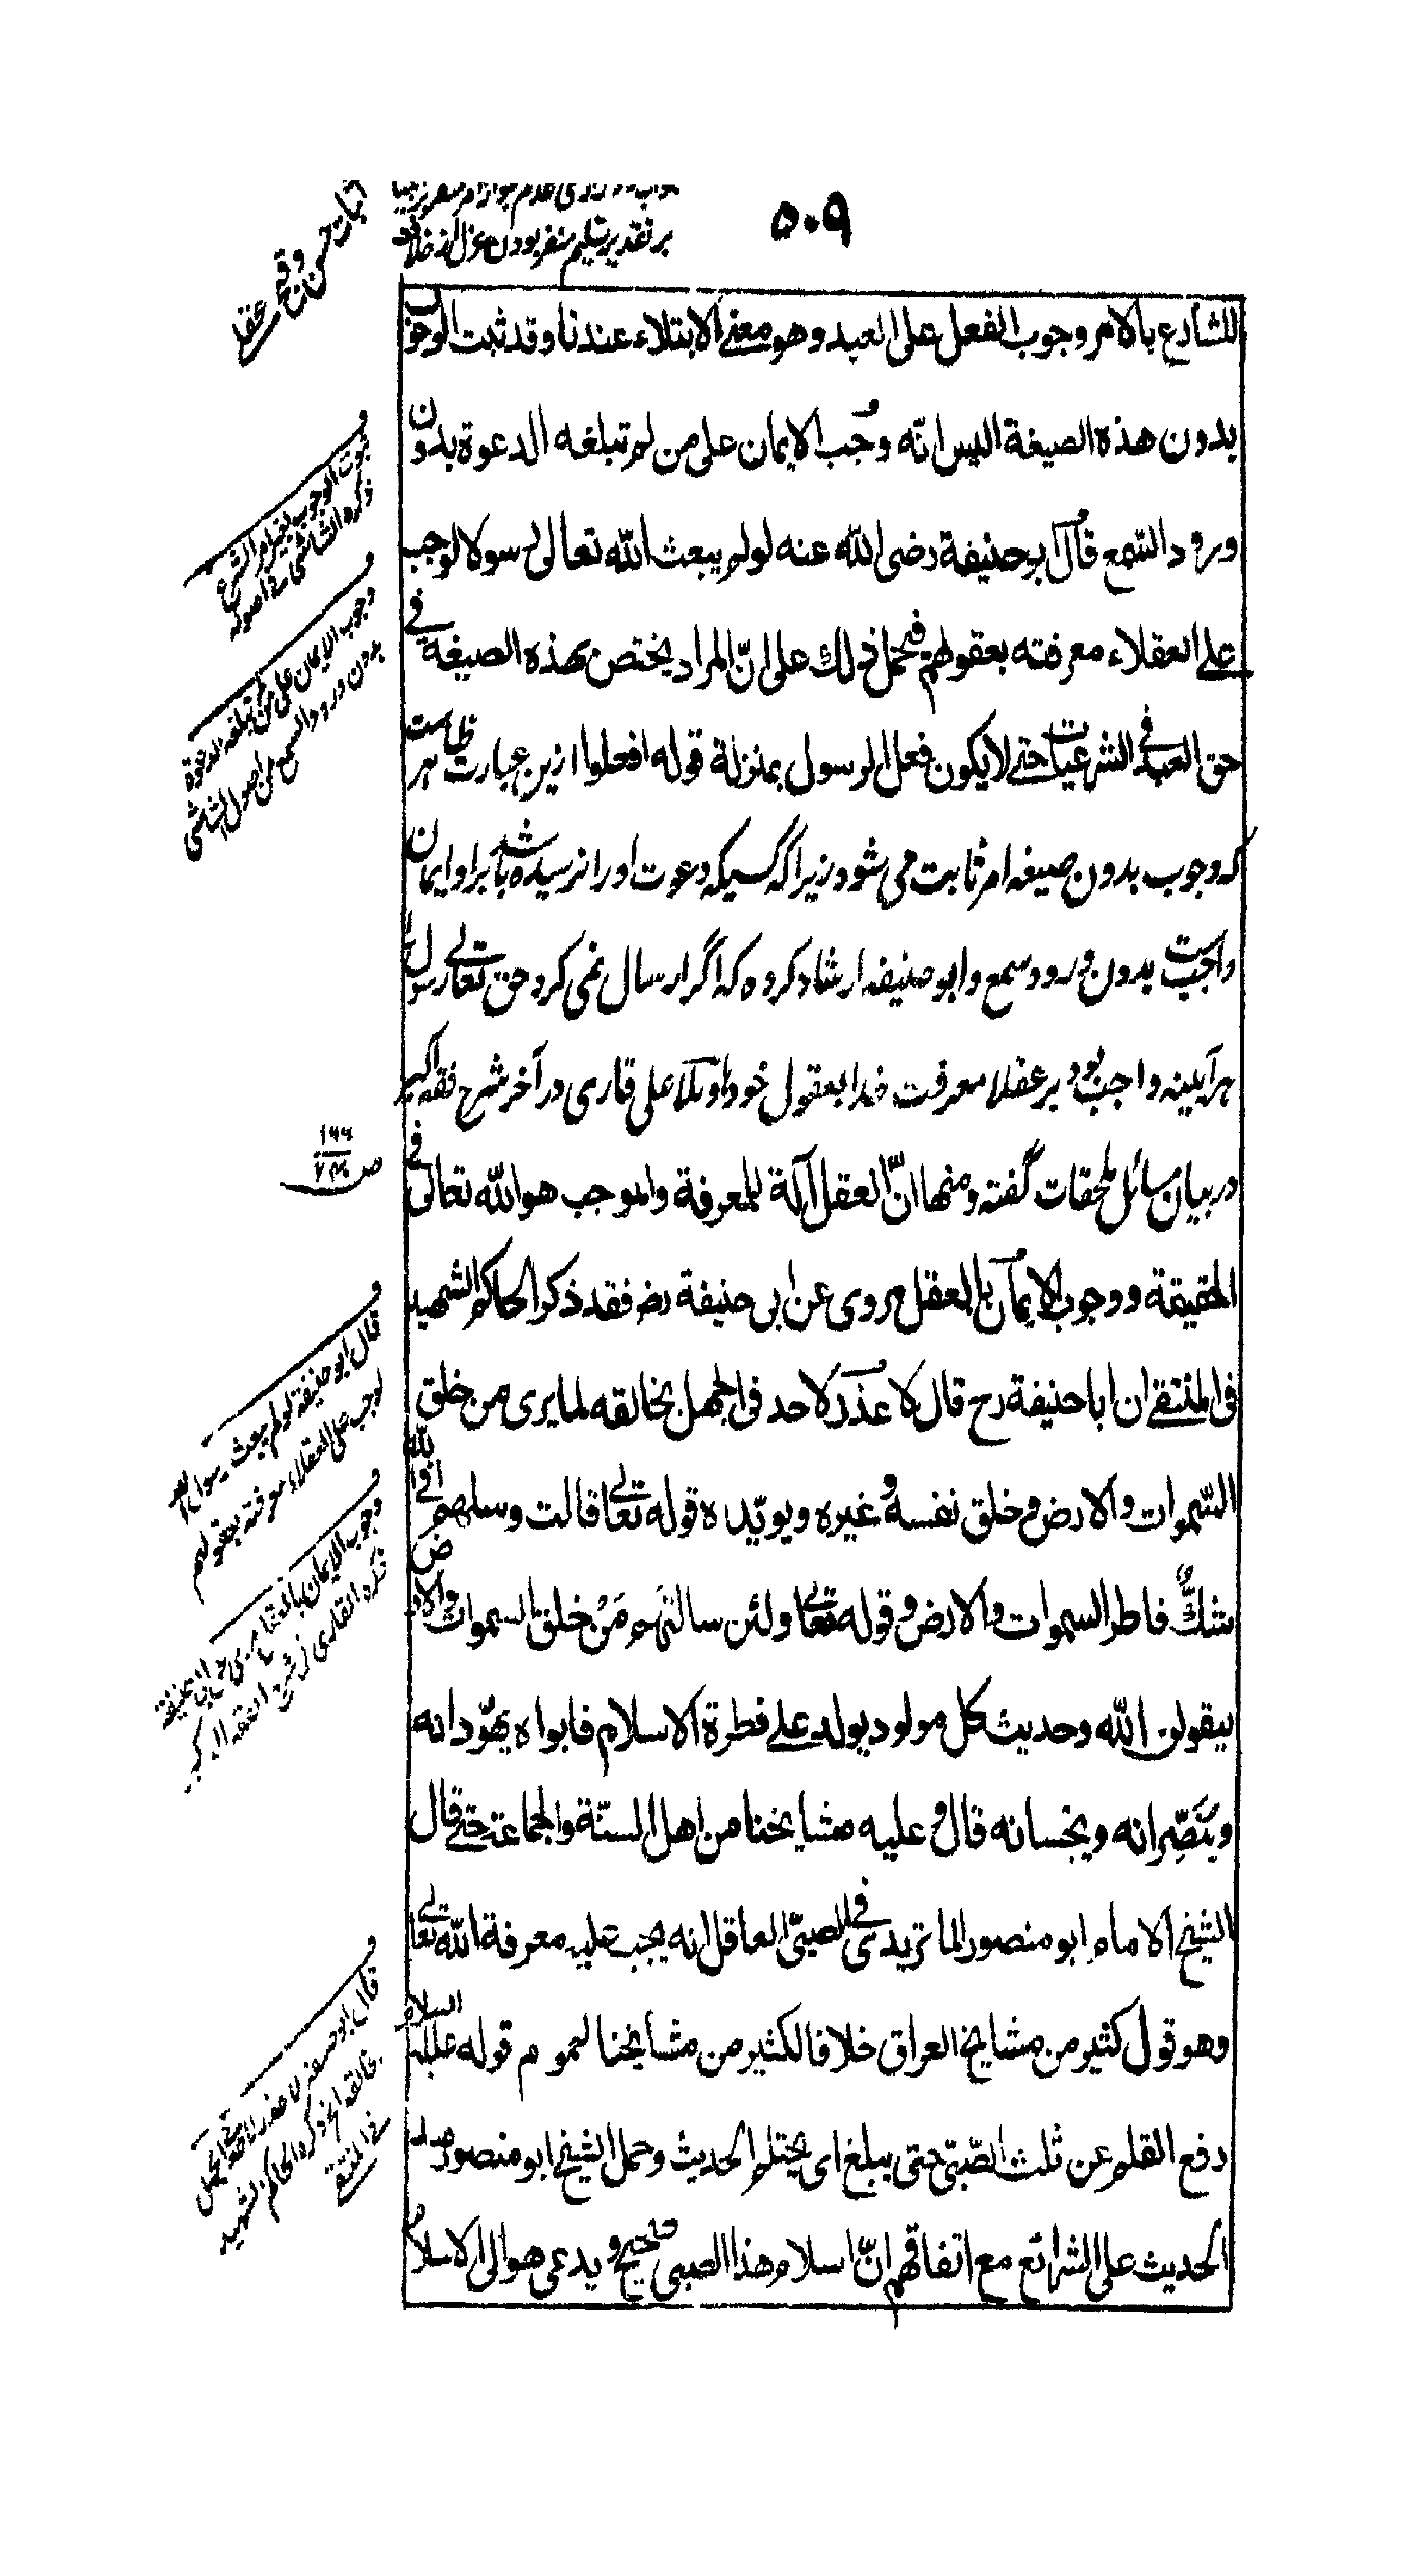 ۵۰۹
بر تقدیر تسلیم منفر بودن عزل از خلافت
اثبات حسن و قبح عقلے
للشارع بالامر وجوب الفعل على العبد وهو معنى الابتلاء عندنا وقد ثبت الوجوب
بدون هذه الصيغة اليس انّه وجب الايمان على من لم تبلغه الدعوة بدون
ورود السّمع قال ابو حنيفة رضى الله عنه لو لم يبعث الله تعالى رسولا لوجب
على العقلاء معرفته بعقولهم فيحمل ذلك على انّ المراد يختص بهذه الصيغة فى
حق العبد فى الشرعيات حتى لا يكون فعل الرسول بمنزلة قوله افعلوا ازین عبارت ظاهرست
که وجوب بدون صیغه امر ثابت می شود زیراکه کسیکه دعوت او را نرسیده باشد بر او ایمان
واجبست بدون ورود سمع و ابو حنیفه ارشاد کرده که اگر ارسال نمی کرد حق تعالے رسول را
هر آیینه واجب بود بر عقلا معرفت خدا بعقول خود و ملا علی قاری در آخر شرح فقه اکبر
در بیان مسائل ملحقات گفته ومنها انّ العقل آلة للمعرفة والموجب هو الله تعالى فى
الحقيقة ووجوب الايمان بالعقل مروى عن ابى حنيفة رض فقد ذكر الحاكم الشهيد
فى المنتقى ان ابا حنيفة رح قال لا عذر لاحد فى الجهل بخالقه لما يرى من خلق
السّموات والارض وخلق نفسه وغيره ويويّده قوله تعالى قالت رسلهم افى الله
شكّ فاطر السموات والارض وقوله تعالى ولئن سالتهم مَنْ خلق السموات والارض
ليقولن الله وحديث كل مولود يولد على فطرة الاسلام فابواه يهوّدانه
وينَصِّرانه ويمجسانه قال وعليه مشايخنا من اهل السنّة والجماعة حتى قال
الشيخ الامام ابو منصور الماتريدى فى الصبىّ العاقل انه يجب عليه معرفة الله تعالى
وهو قول كثير من مشايخ العراق خلافا لكثير من مشايخنا لعموم قوله عليه السلام
رفع القلم عن ثلث الصّبىّ حتى يبلغ اى يحتلم الحديث وحمل الشيخ ابو منصور
الحديث على الشرائع مع اتفاقهم انّ اسلام هذا الصبى صحيح ويدعى هو الى الاسلام
ف
ثبوت الوجوب بغير امر الشرع
ذكره الشاشى فى اصوله
ف
وجوب الايمان على من لم تبلغه الدعوة
بدون ورود السمع من اصول الشاشى
ف
قال ابو حنيفة لو لم يبعث رسولا
لوجب على العقلاء معرفته بعقولهم
ف
وجوب الايمان بالعقل مروى عن ابى حنيفة
ذكره القارى فى شرح الفقه الاكبر
ف
قال ابو حنيفة لا عذر لاحد فى الجهل
بخالقه الخ ذكره الحاكم الشهيد
فى المنتقى